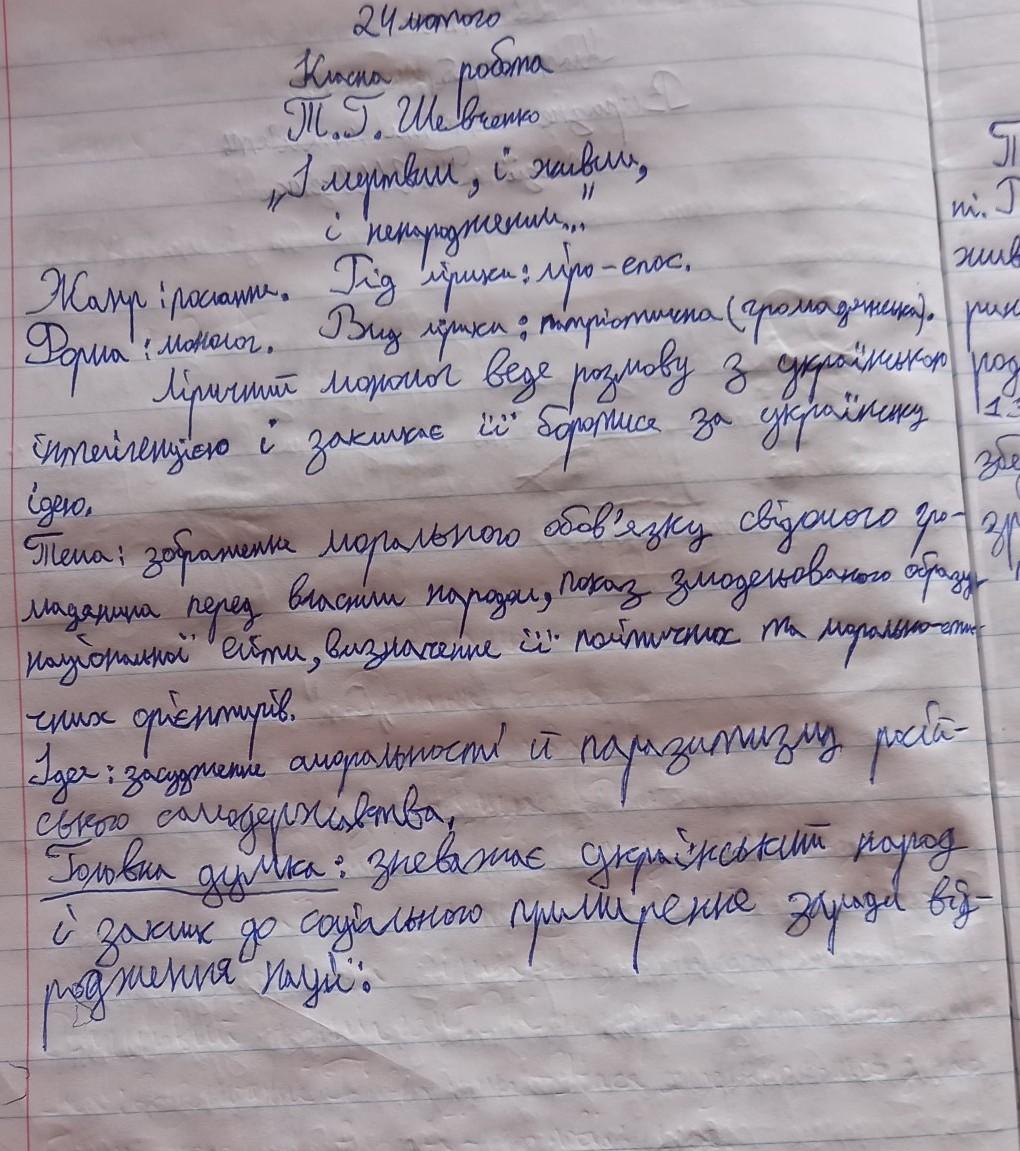 24 лютого
Класна робота
Т.Г. Шевченко
„І мертвим, і живим,
і ненародженим..."
Жанр: послання. Рід лірики: ліро-епос.
Форма: монолог. Вид лірики: патріотична (громадянська).
Ліричний монолог веде розмову з українською
інтелігенцією і закликає її боротися за українську
ідею.
Тема: зображення морального обов'язку свідомого гро-
мадянина перед власним народом, показ змодельованого образу
національної еліти, визначення її політичних та морально-ети-
чних орієнтирів.
Ідея: засудження аморальності й паразитизму росій-
ського самодержавства,
Головна думка: зневажає український народ
і заклик до соціального примирення заради від-
родження нації.
Т
ті. Г
жив
рин
род
13
збе
зр